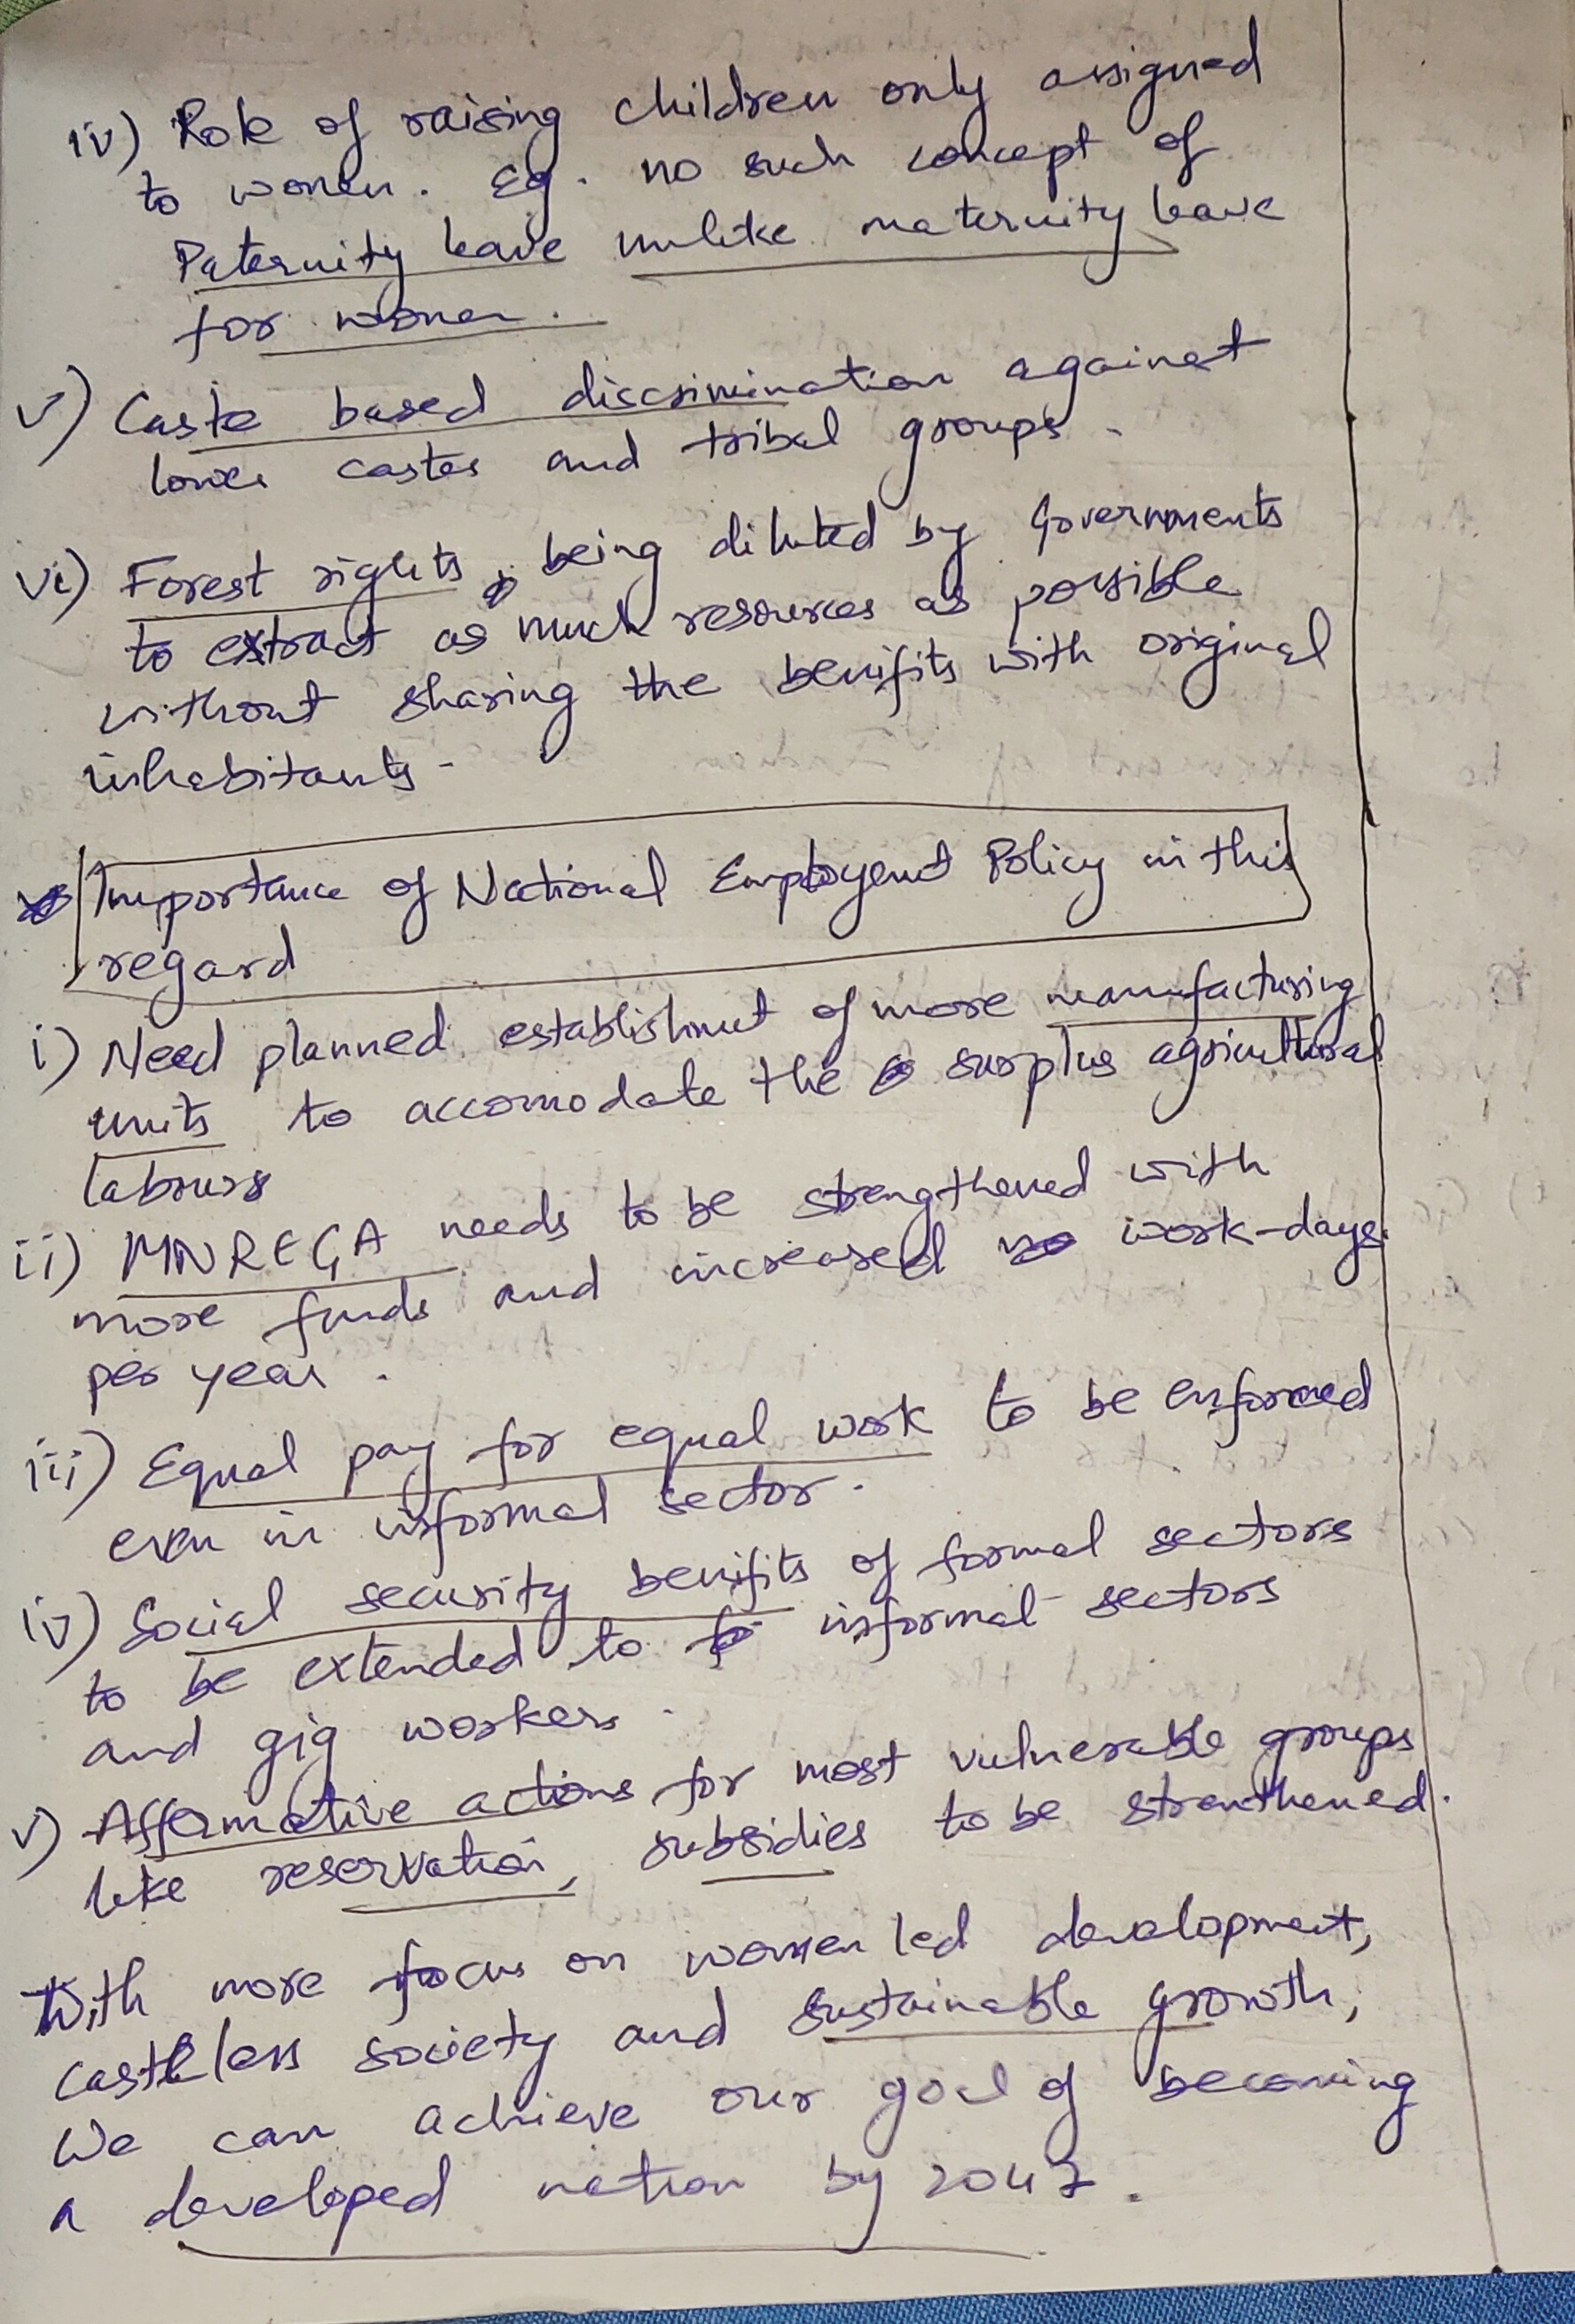 iv) Role of raising children only assigned
to women. Eg. no such concept of
Paternity leave unlike maternity leave
for women.
v) Caste based discrimination against
lower castes and tribal groups.
vi) Forest rights being diluted by Governments
to extract as much resources as possible
without sharing the benifits with original
inhabitants.
Importance of National Employent Policy in this
regard
i) Need planned establishment of more manufacturing
units to accomodate the surplus agricultural
labours
ii) MNREGA needs to be strengthened with
more funds and increased work-days
per year.
iii) Equal pay for equal work to be enforced
even in informal sector.
iv) Social security benifits of formal sectors
to be extended to informal sectors
and gig workers.
v) Affirmative actions for most vulnerable groups
like reservation, subsidies to be strenthened.
With more focus on women led development,
casteless society and sustainable growth,
We can achieve our goal of becoming
a developed nation by 2047.